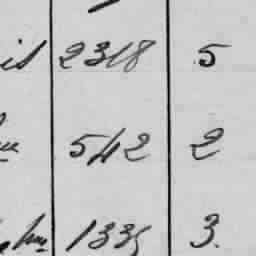 2318 5
542 2
1335 3.